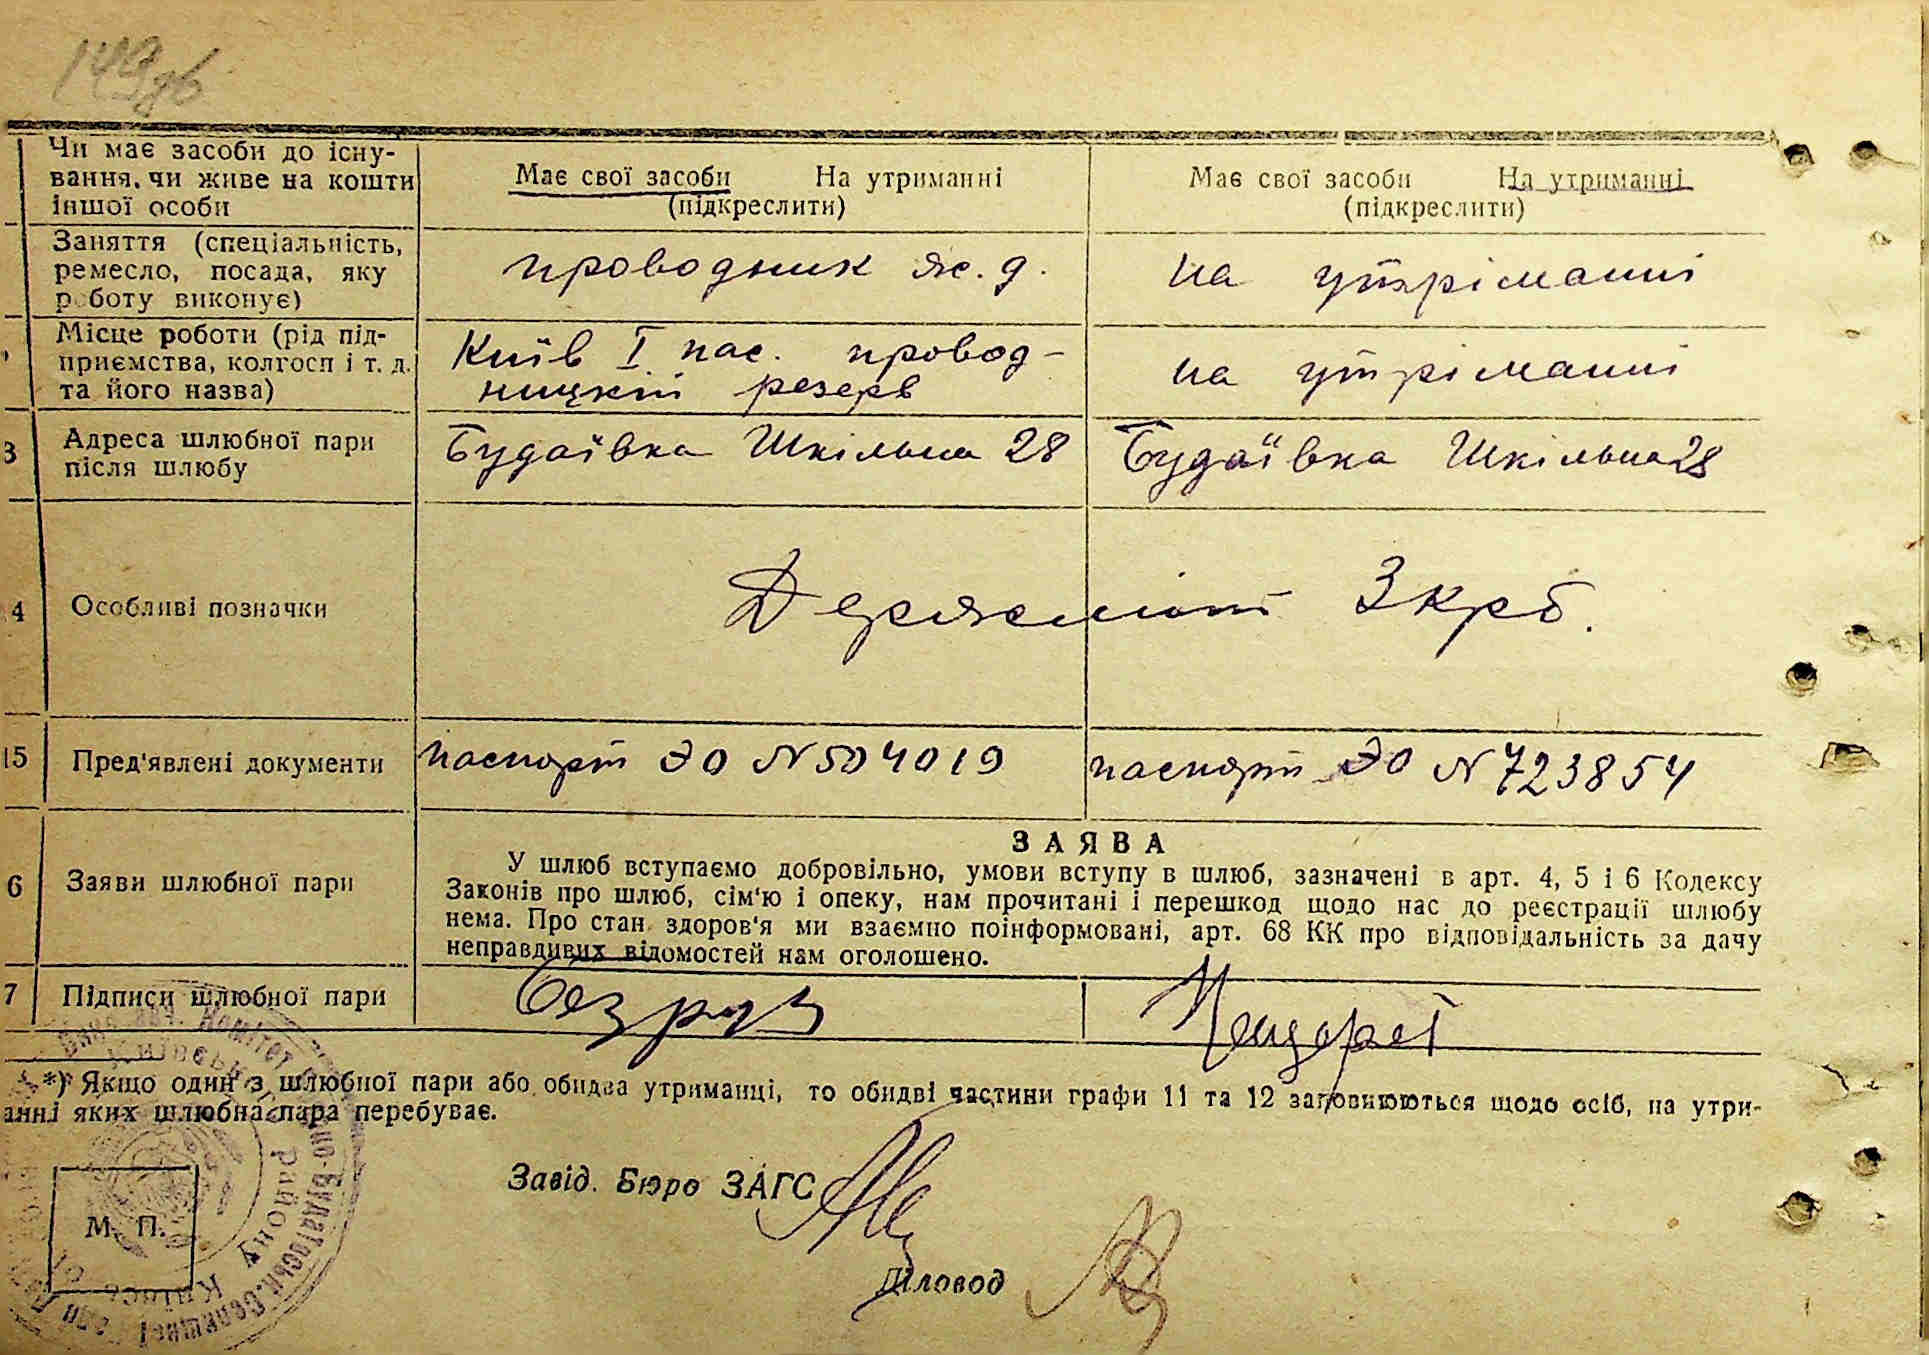 149 зв
Чи має засоби до існу-
вання, чи живе на кошти
іншої особи
Має свої засоби На утриманні
(підкреслити)
Має свої засоби На утриманні
(підкреслити)
Заняття (спеціальність,
ремесло, посада, яку
роботу виконує)
проводник ж. д.
на утріманні
Місце роботи (рід під-
приємства, колгосп і т. д.
та його назва)
Київ І пас. провод-
ницкій резерв
на утріманні
3
Адреса шлюбної пари
після шлюбу
Будаївка Шкільна 28
Будаївка Шкільна 28
4
Особливі позначки
Держміт 3 крб.
15
Пред'явлені документи
паспорт ЭО № 504019
паспорт ЭО № 723854
6
Заяви шлюбної пари
ЗАЯВА
У шлюб вступаємо добровільно, умови вступу в шлюб, зазначені в арт. 4, 5 і 6 Кодексу
Законів про шлюб, сім'ю і опеку, нам прочитані і перешкод щодо нас до реєстрації шлюбу
нема. Про стан здоров'я ми взаємно поінформовані, арт. 68 КК про відповідальність за дачу
неправдивих відомостей нам оголошено.
7
Підписи шлюбної пари
*) Якщо один з шлюбної пари або обидва утриманці, то обидві частини графи 11 та 12 заповнюються щодо осіб, на утри-
анні яких шлюбна пара перебуває.
Завід. Бюро ЗАГС
М. П.
Діловод